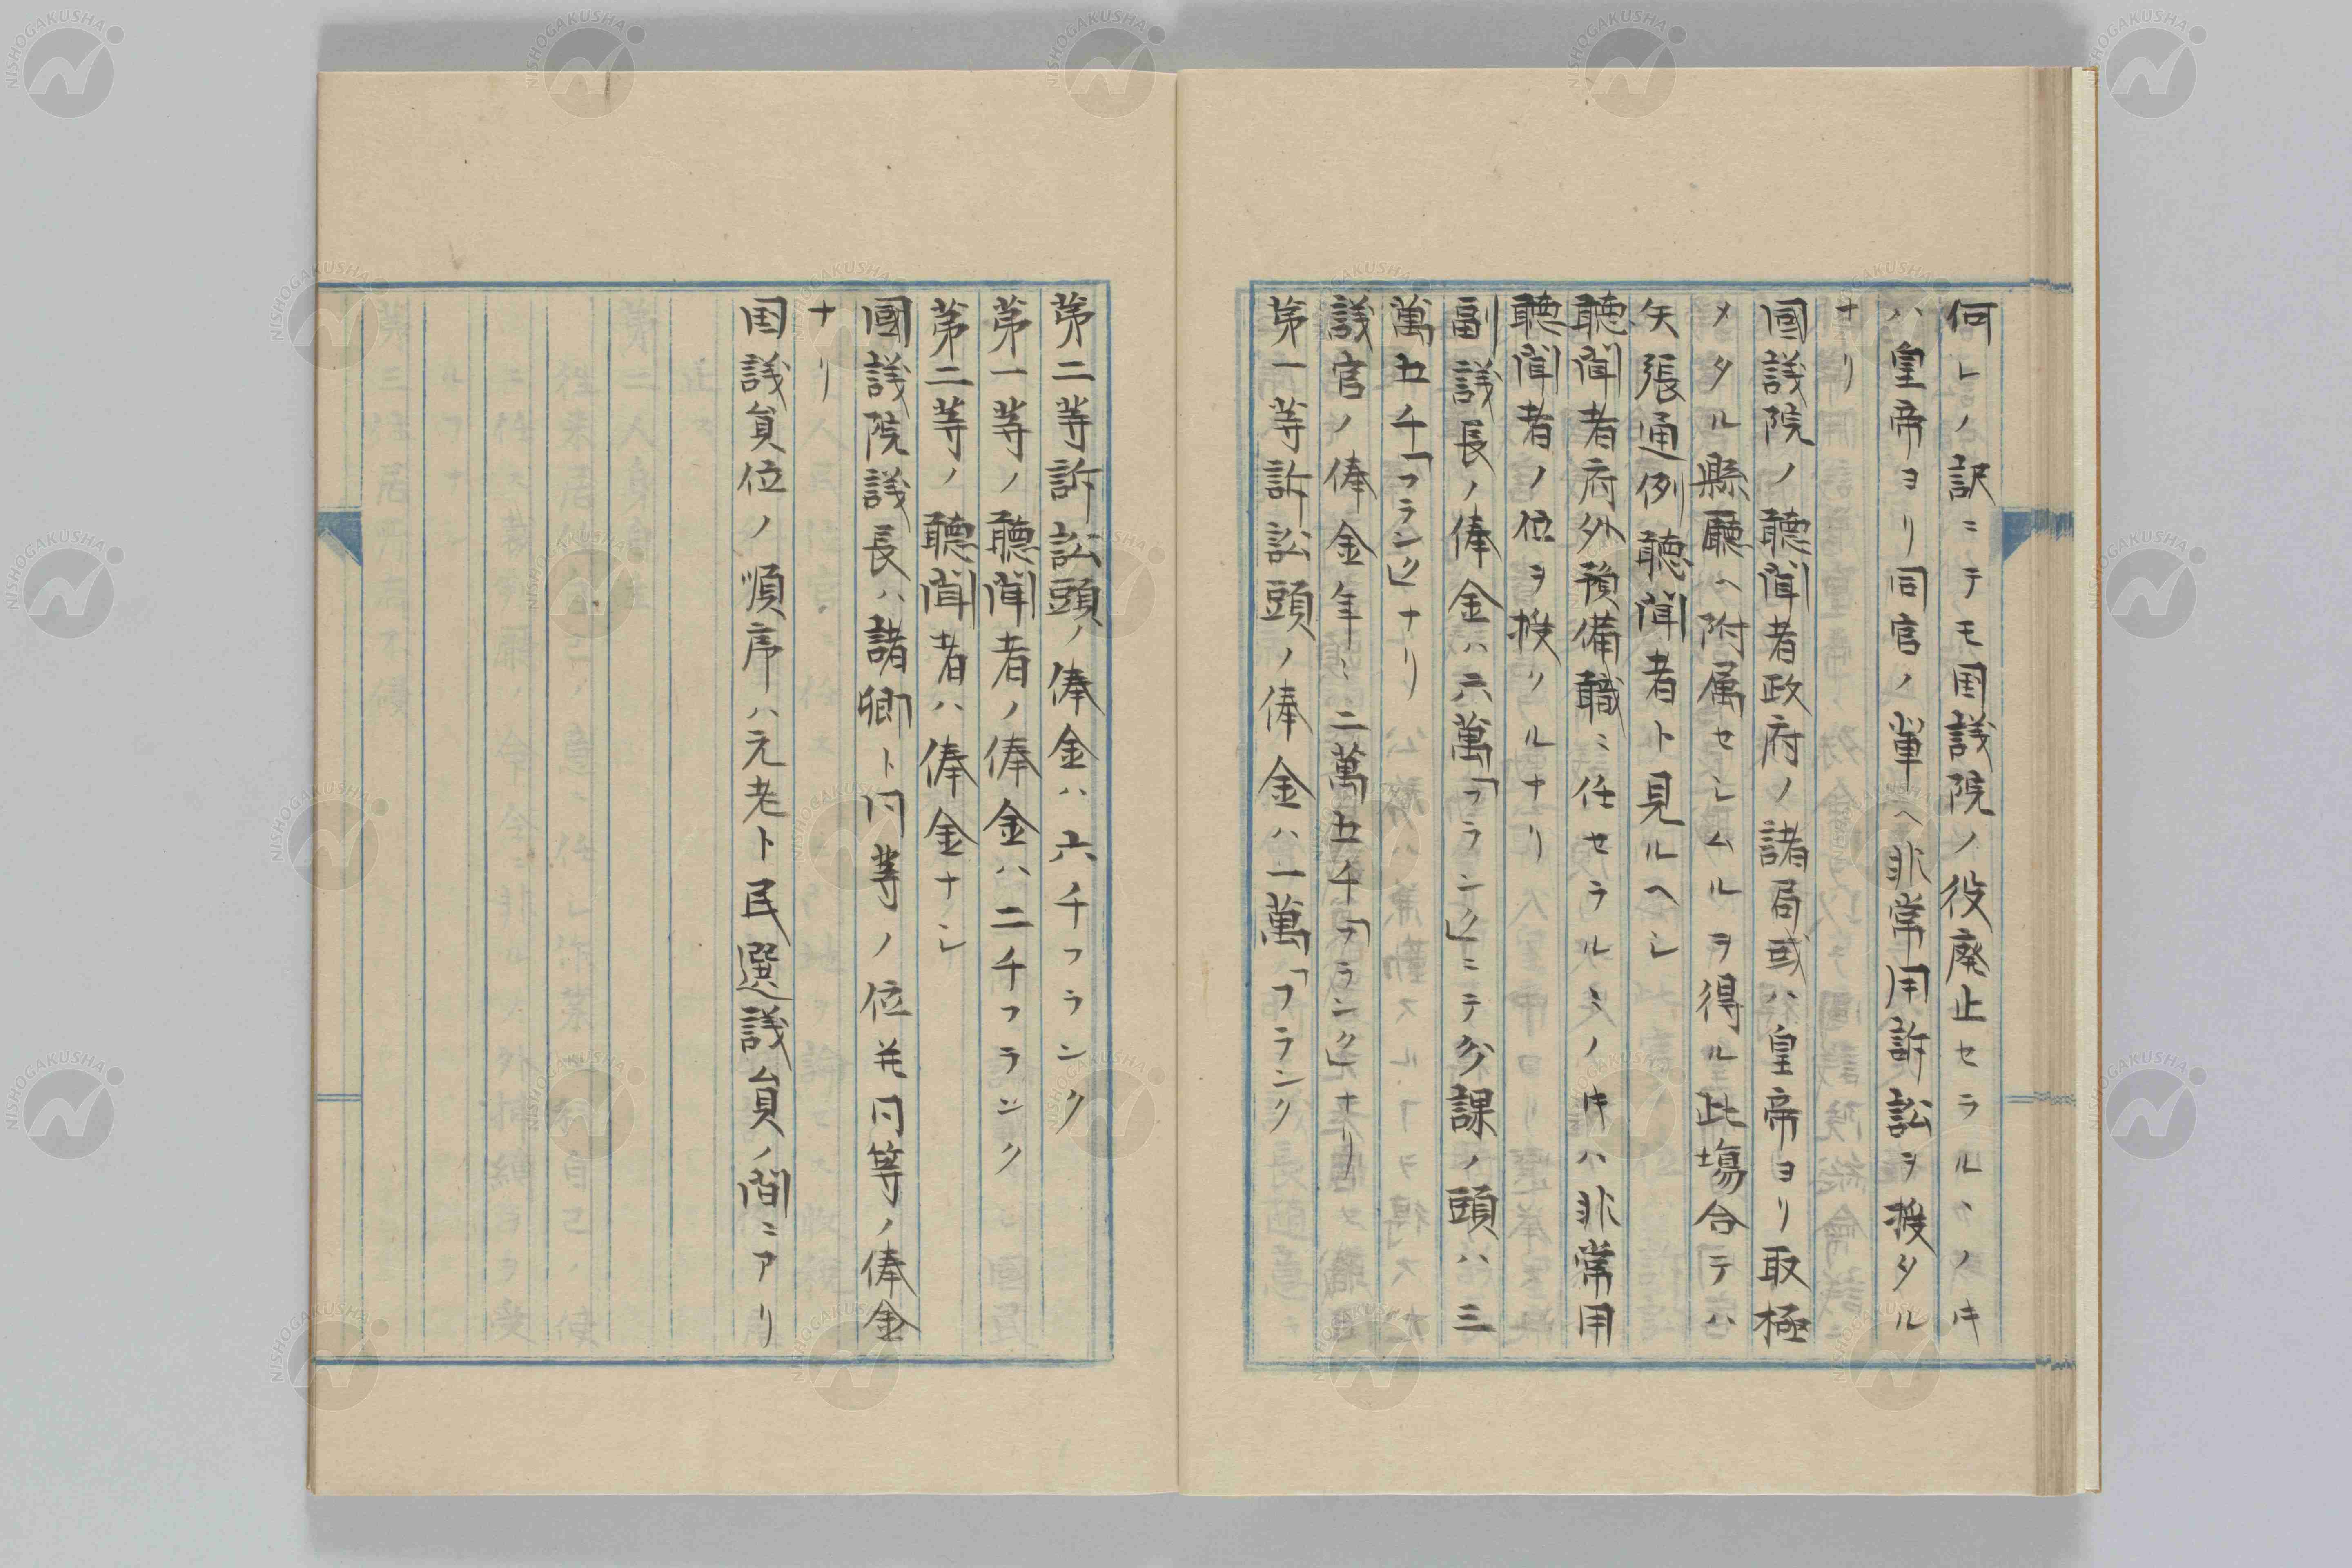 何レノ訳ニテモ国議院ノ役廃止セラルヽノキ
ハ皇帝ヨリ同官ノ輩ヘ非常用訴訟ヲ授タル
ナリ
国議院ノ聴聞者政府ノ諸局或ハ皇帝ヨリ取極
メタル縣廳ヘ附属セシムルヲ得ル此塲合テハ
矢張通例聴聞者ト見ルヘシ
聴聞者府外預備職ニ任セラルミノキハ非常用
聴聞者ノ位ヲ授リルナリ
副議長ノ俸金ハ六萬「フランク」ニテ分課ノ頭ハ三
萬五千「フランク」ナリ
議官ノ俸金年ミ二萬五千「フランク」ナリ
第一等訴訟頭ノ俸金ハ一萬「フランク
第二等訴訟頭ノ俸金ハ六千フランク
第一等ノ聴聞者ノ俸金ハ二千フランク
第二等ノ聴聞者ハ俸金ナシ
國議院議長ハ諸卿ト同等ノ位并同等ノ俸金
ナリ
国議員位ノ順序ハ元老ト民選議員ノ間ニアリ
NISHOGAKUSHA